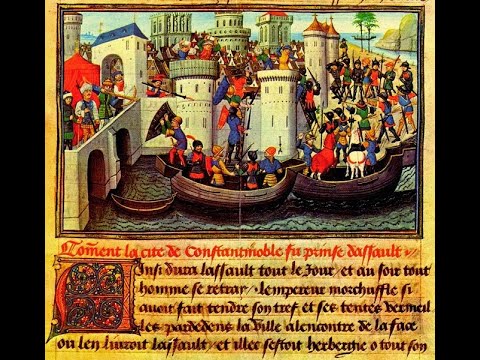 Com̃ent la cite de Constantinoble fu prinse dassault
Ainsi dura lassault tout le Jour et au soir tout
homme se retrar . lempereur morchuffle si
auoit fait tendre son tref et ses tentes vermeil
les pardedens la ville alencontre de la face
ou len liuroit lassault et illec sestoit herbergie o tout son